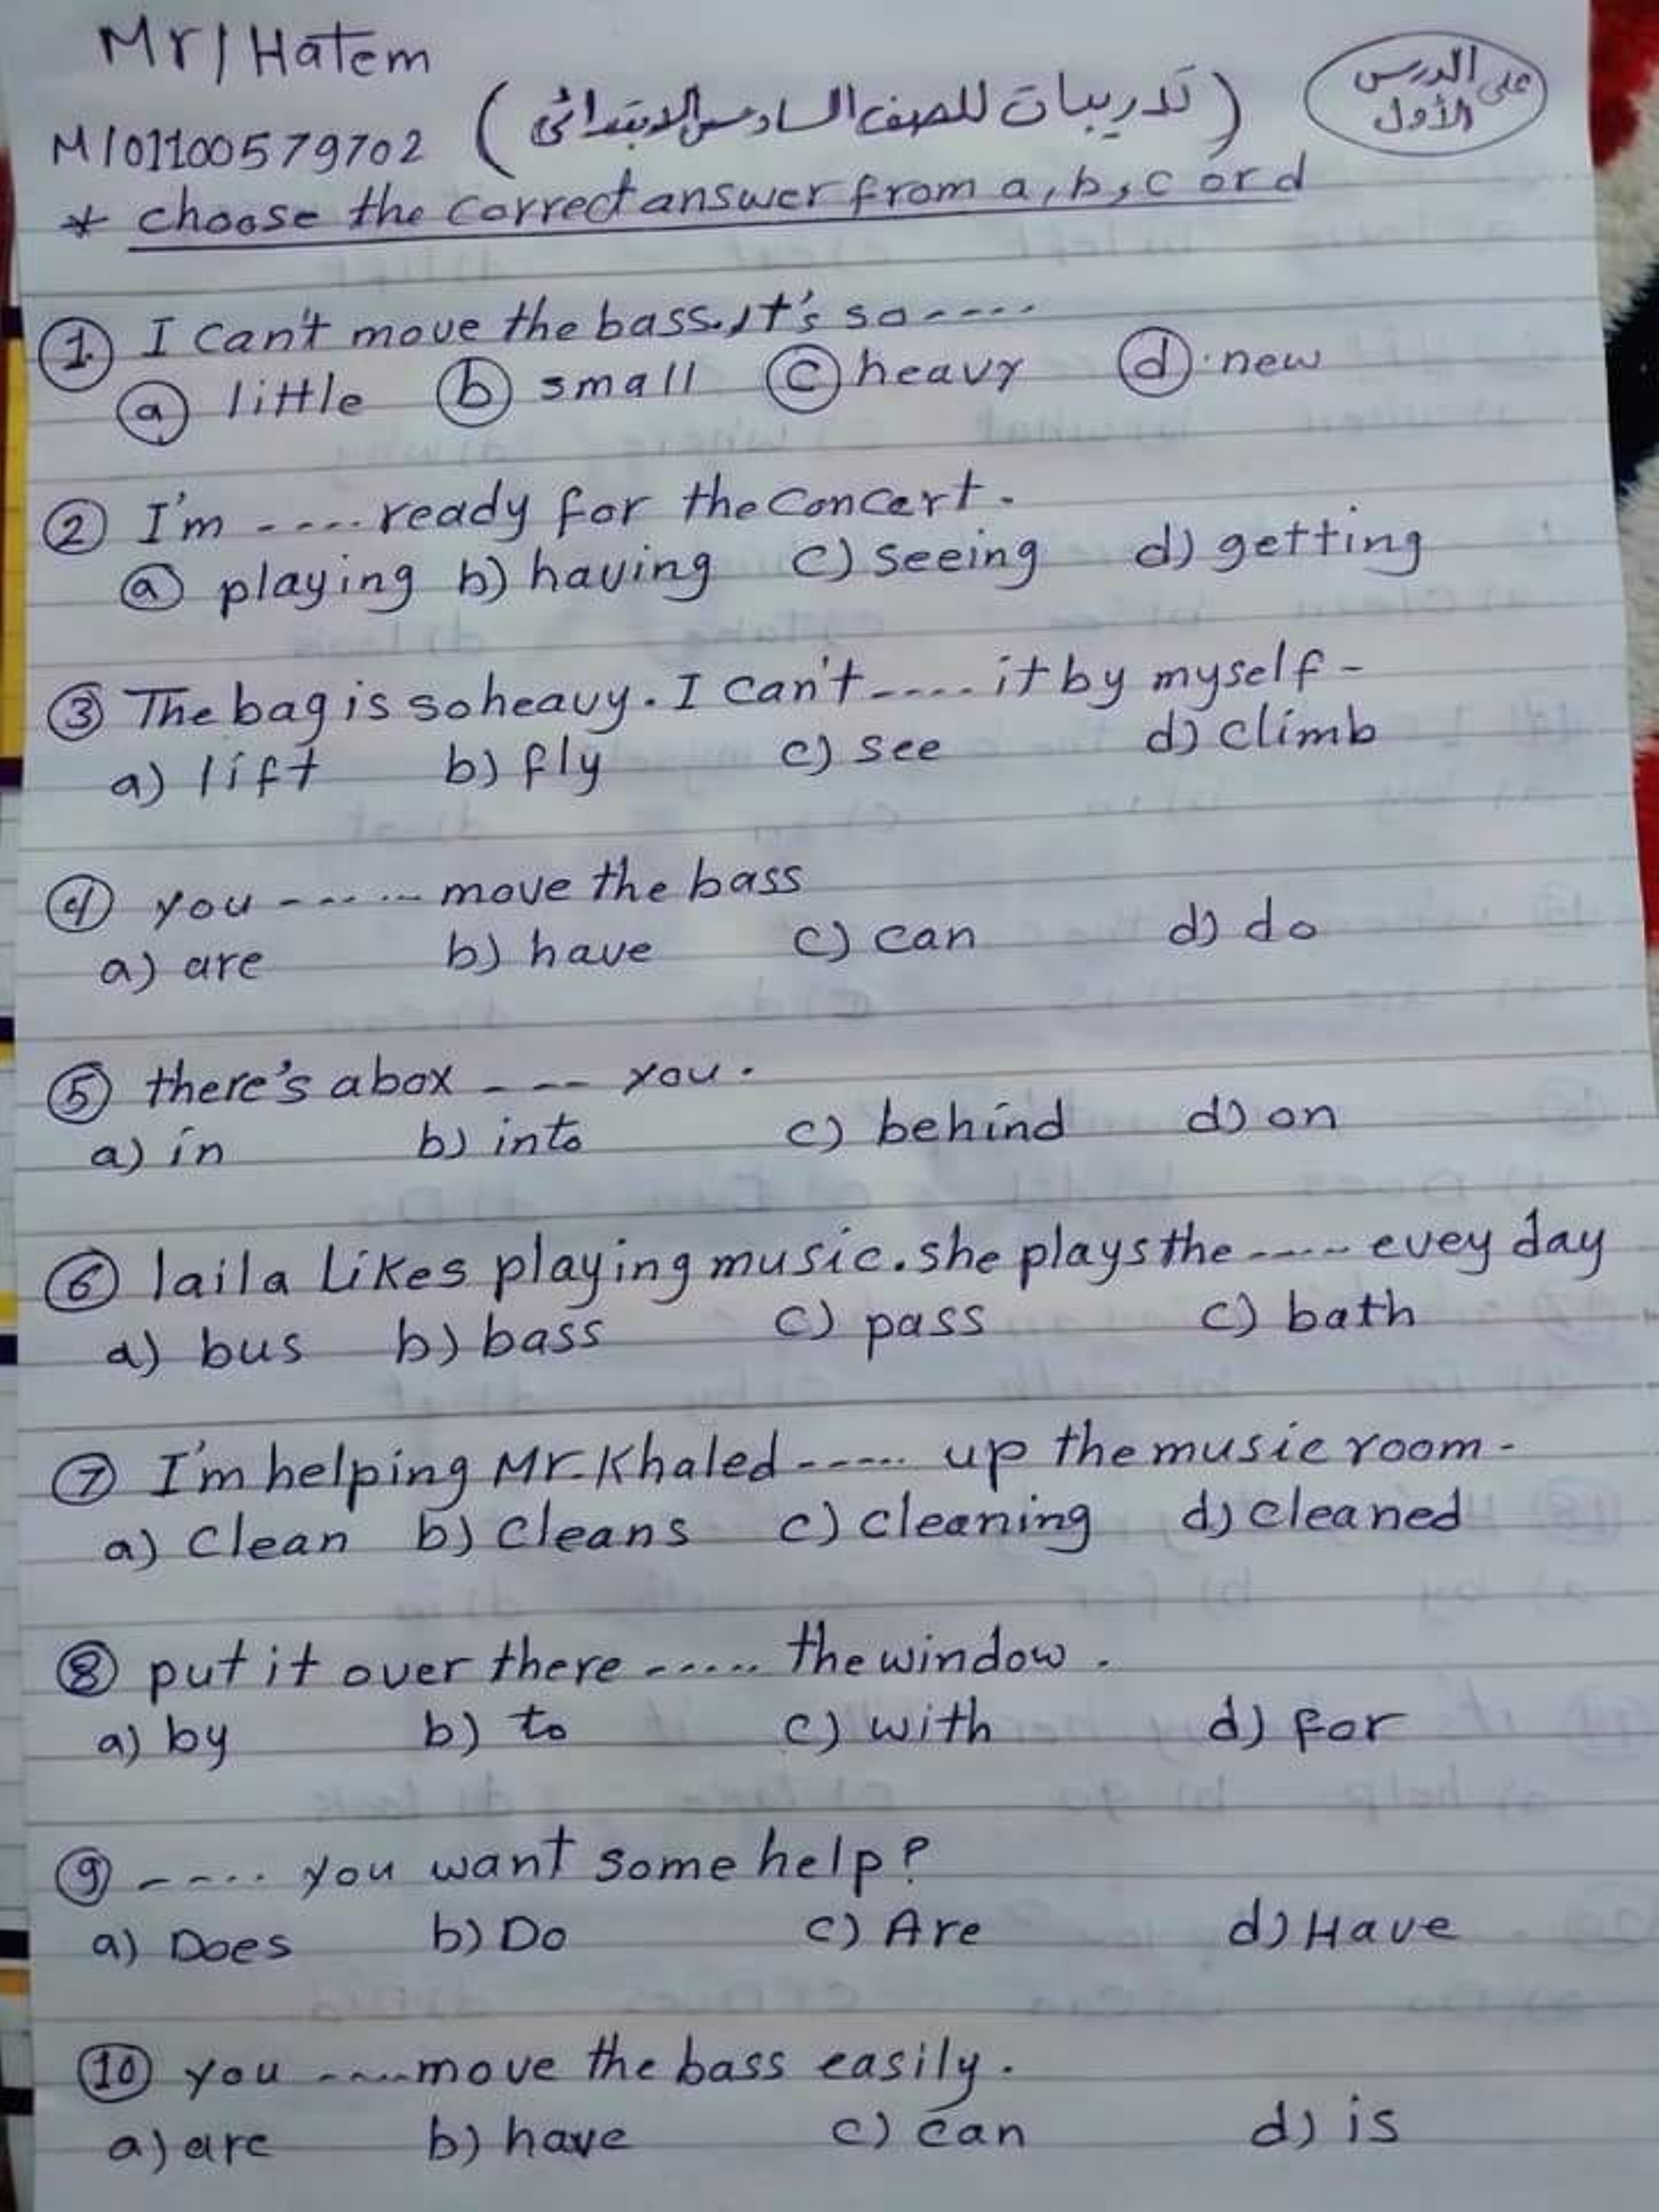 Mr/Hatem
على الدرس
الأول
M/01100579702 (تدريبات للصف السادس الابتدائى)
* choose the correct answer from a, b, c or d
① I can't move the bass. It's so ----
ⓐ little ⓑ small ⓒ heavy ⓓ new
② I'm ---- ready for the concert.
ⓐ playing b) having c) seeing d) getting
③ The bag is so heavy. I can't ---- it by myself -
a) lift b) fly c) see d) climb
④ you ----- move the bass
a) are b) have c) can d) do
⑤ there's a box ---- you.
a) in b) into c) behind d) on
⑥ laila Likes playing music. she plays the ----- evey day
a) bus b) bass c) pass c) bath
⑦ I'm helping Mr. Khaled ----- up the music room -
a) Clean b) cleans c) cleaning d) cleaned
⑧ put it over there ----- the window.
a) by b) to c) with d) for
⑨ ---- you want some help?
a) Does b) Do c) Are d) Have
⑩ you ---- move the bass easily.
a) are b) have c) can d) is